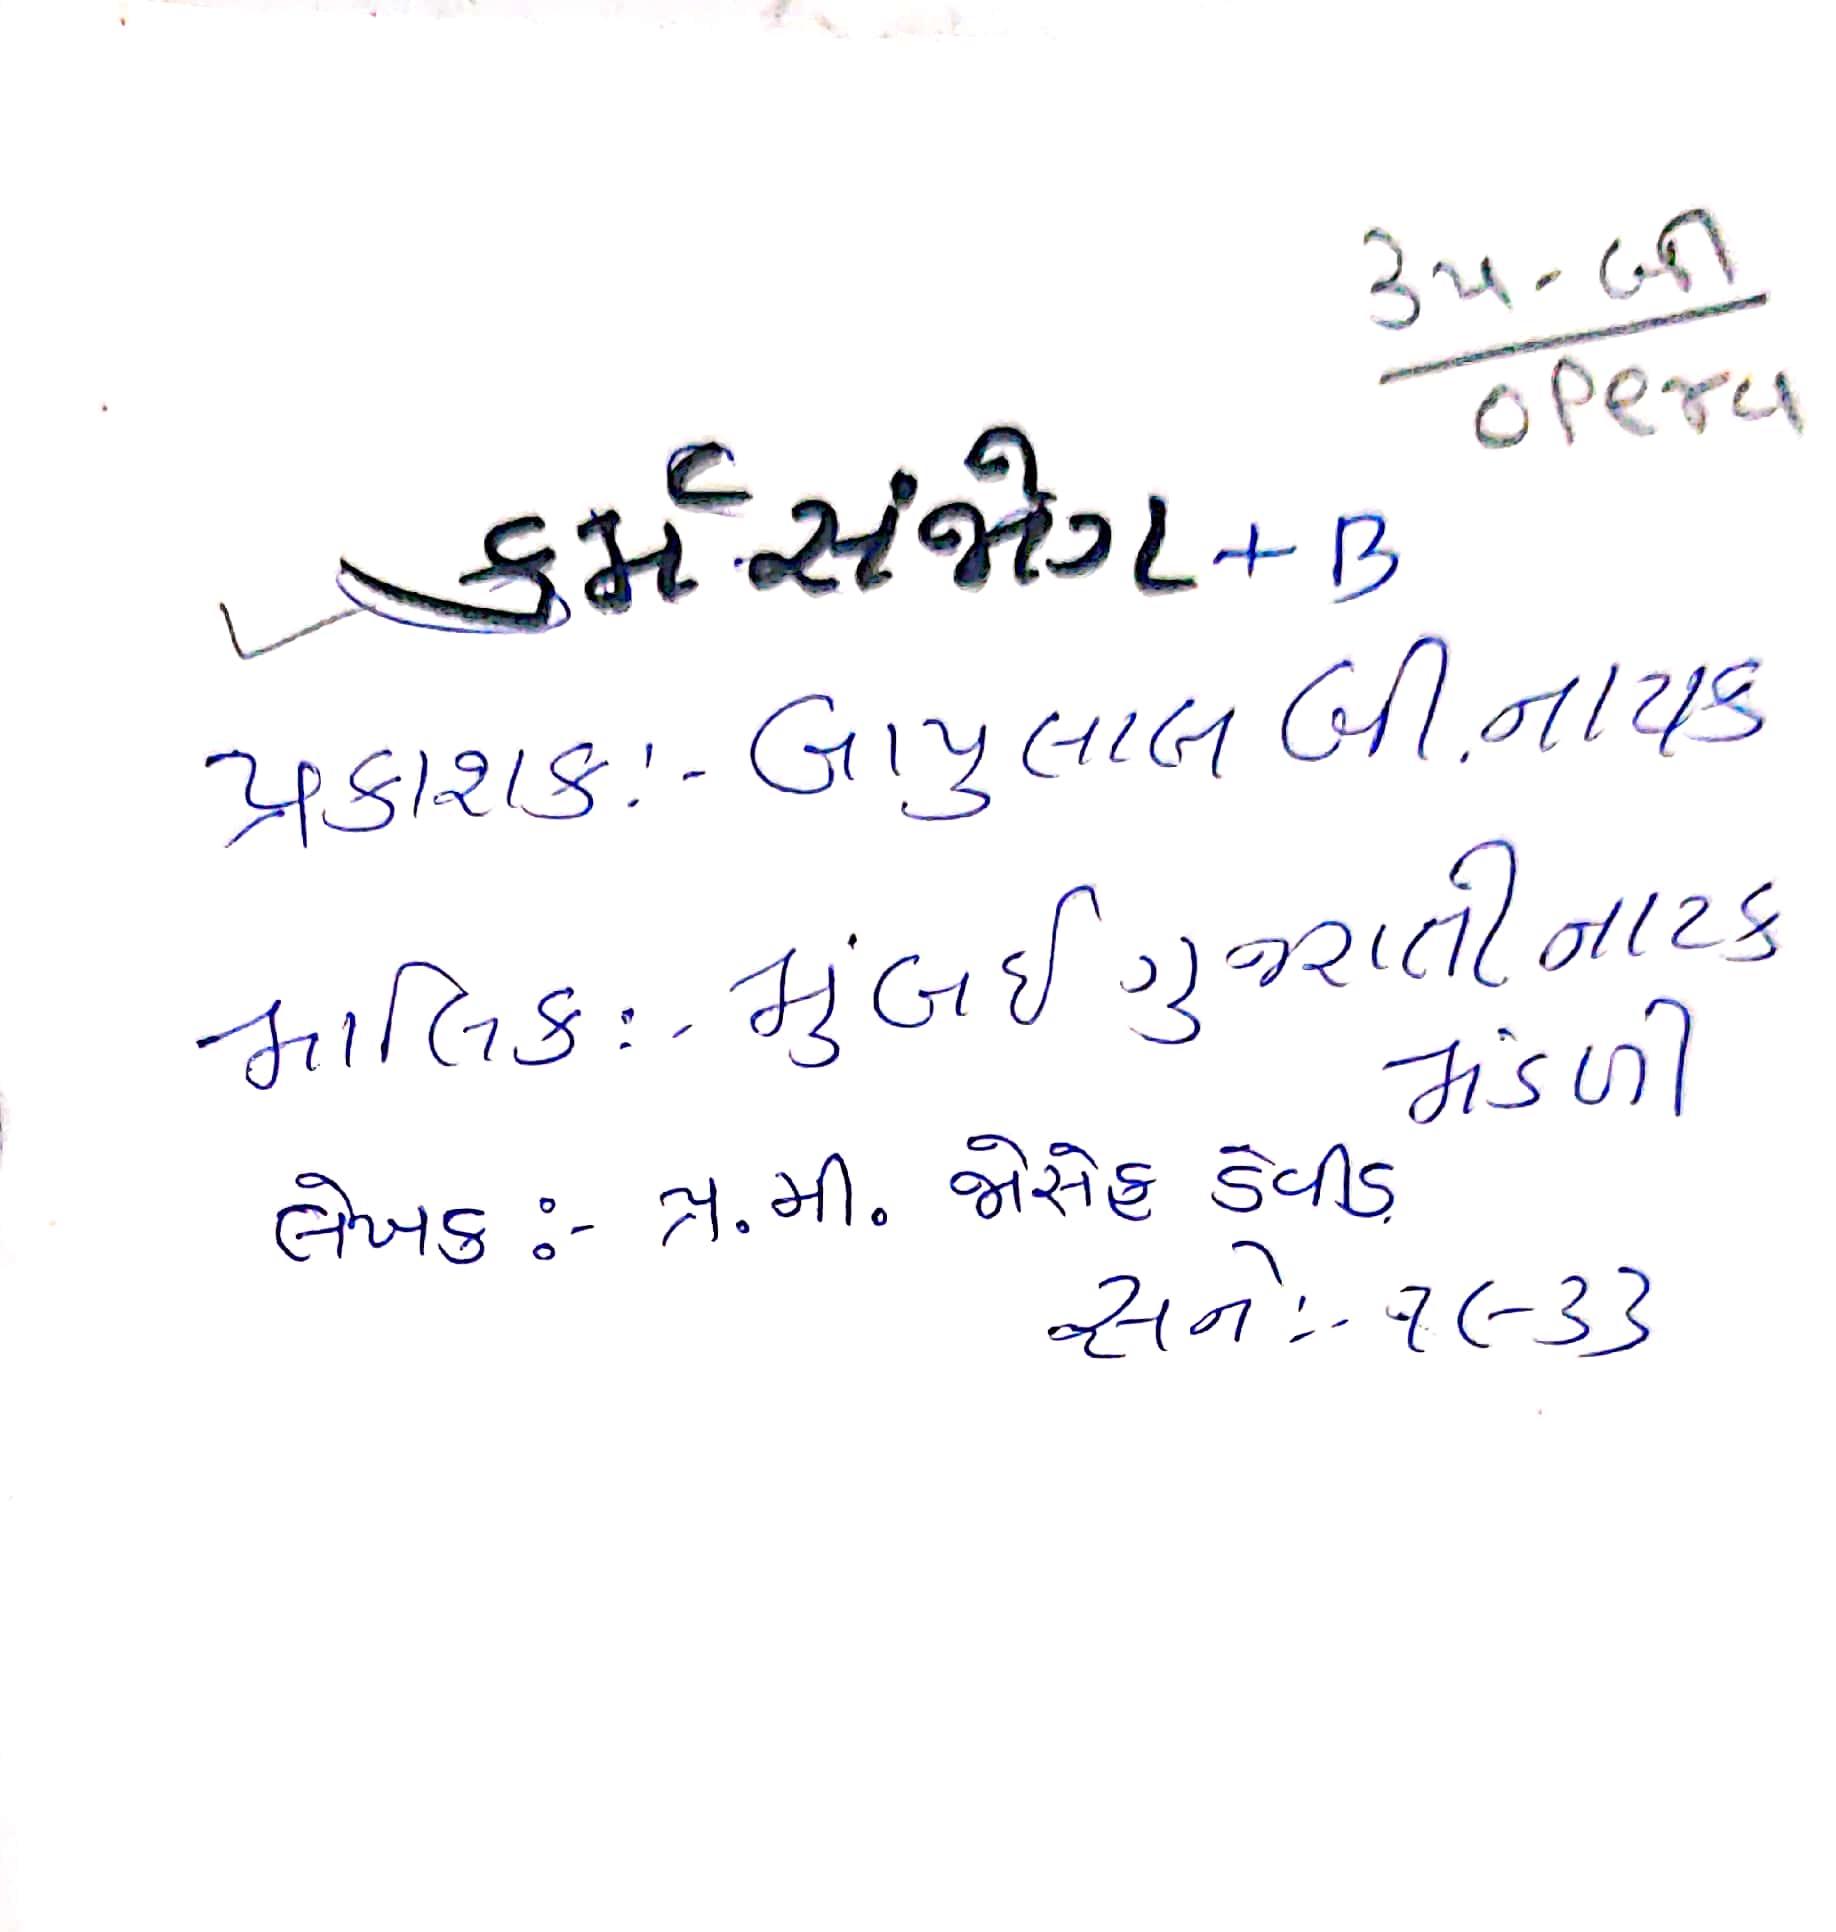 ૩૫-બી
opera
કર્મ સંજોગ + B
પ્રકાશક:- બાપુલાલ બી. નાયક
માલિક:- મુંબઈ ગુજરાતી નાટક
મંડળી
લેખક:- પ્ર. મી. જોસેફ ડેવીડ
સને:- ૧૯૩૩